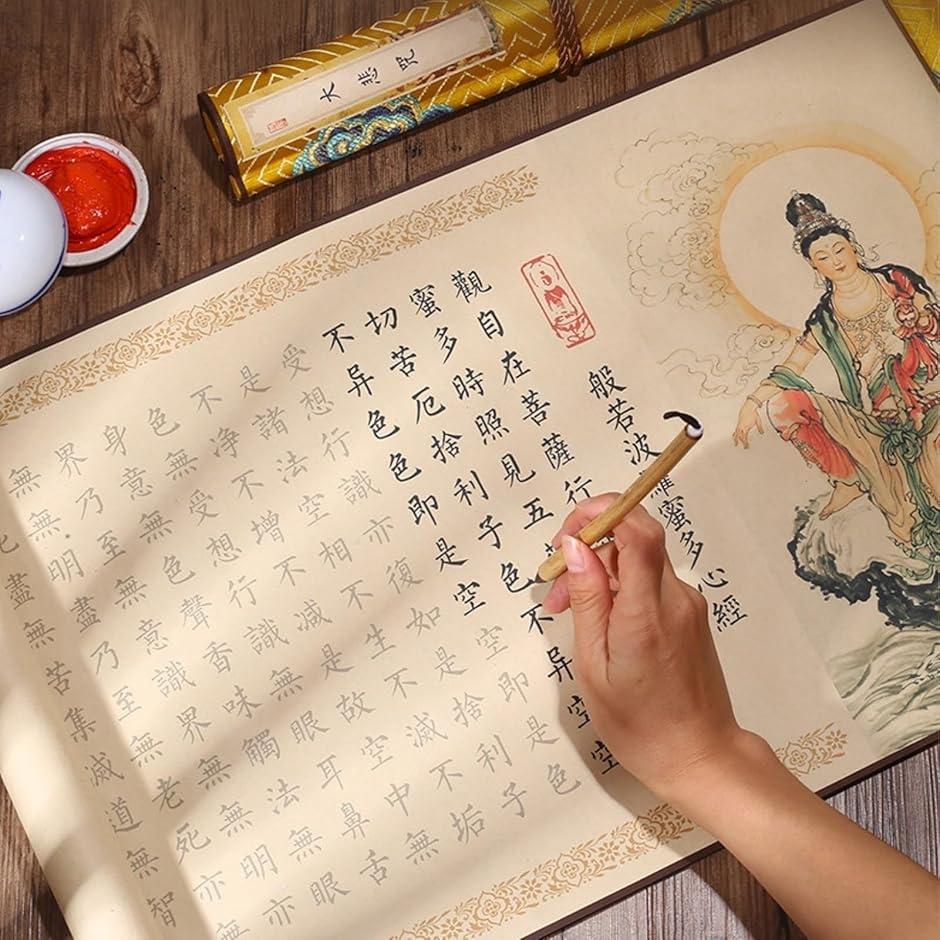 大悲咒
般若波羅蜜多心經
觀自在菩薩行
蜜多時照見五
切苦厄捨利子色不异空空
不异色色即是空空即是色
受想行識亦復如是捨利子
是諸法空相不生不滅不垢
不净不增不减是故空中無
色無受想行識無眼耳鼻舌
身意無色聲香味觸法無眼
界乃至無意識界無無明亦
無無明盡乃至無老死亦無
盡無苦集滅道無智